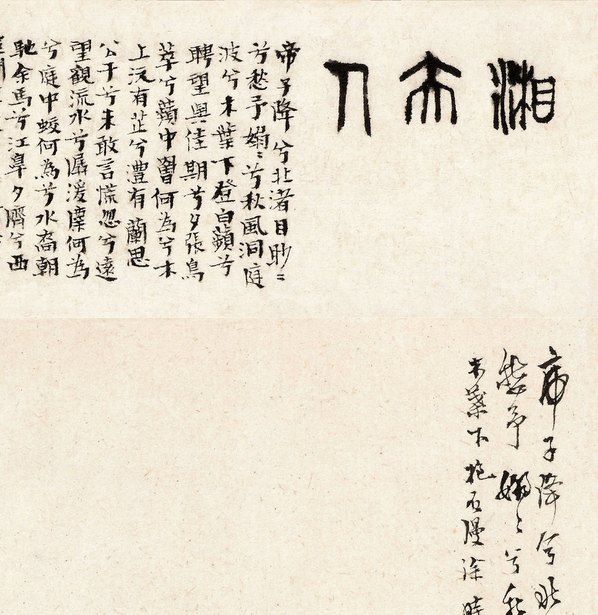 湘夫人
帝子降兮北渚目眇〻
兮愁予嫋〻兮秋風洞庭
波兮木葉下登白蘋兮
聘望與佳期兮夕張鳥
萃兮蘋中罾何為兮木
上沅有芷兮澧有蘭思
公子兮未敢言慌忽兮遠
望觀流水兮潺湲麋何為
兮庭中蛟何為兮水裔朝
馳余馬兮江皋夕濟兮西
帝子降兮北
愁予嫋〻兮秋
木葉下抱石漫涂時